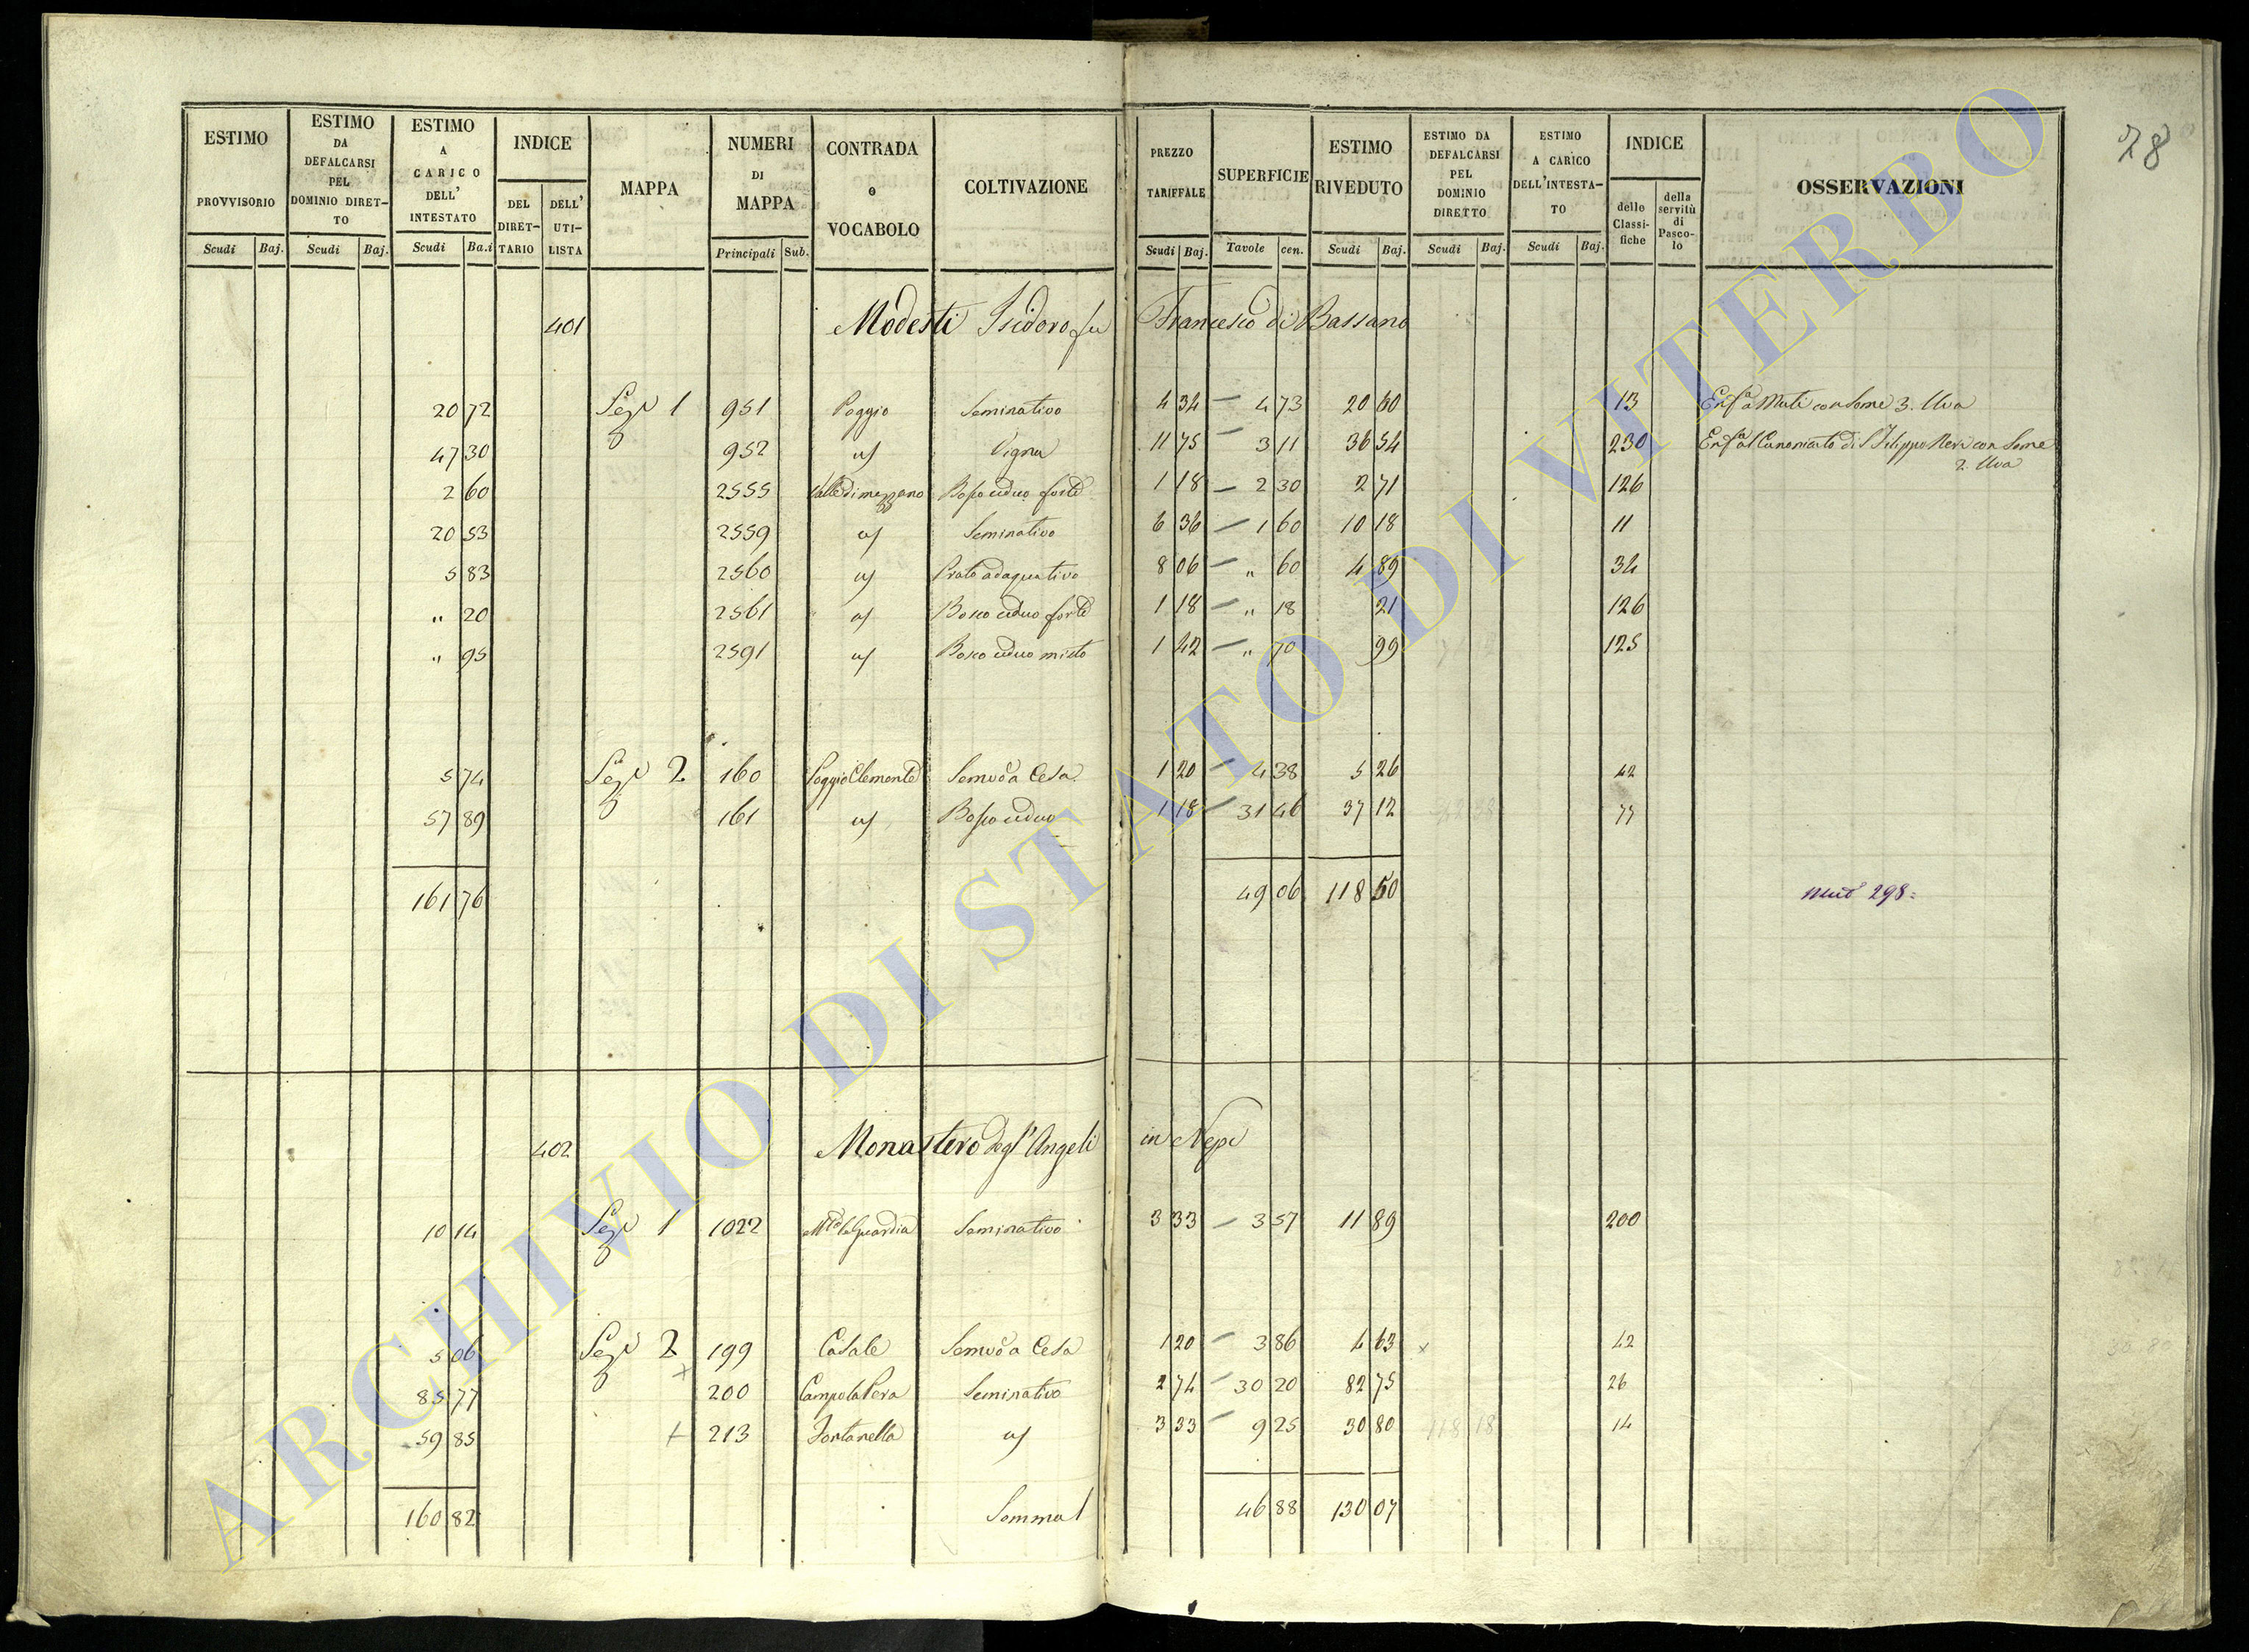 ESTIMO PROVVISORIO Scudi Baj.
ESTIMO DA DEFALCARSI PEL DOMINIO DIRET-TO Scudi Baj.
ESTIMO A CARICO DELL' INTESTATO Scudi Ba.i
INDICE DEL DIRET-TARIO DELL' UTI-LISTA
MAPPA
NUMERI DI MAPPA Principali Sub.
CONTRADA e VOCABOLO
COLTIVAZIONE
PREZZO TARIFFALE Scudi Baj.
SUPERFICIE Tavole cen.
ESTIMO RIVEDUTO Scudi Baj.
ESTIMO DA DEFALCARSI PEL DOMINIO DIRETTO Scudi Baj.
ESTIMO A CARICO DELL'INTESTA-TO Scudi Baj.
INDICE delle Classi-fiche della servitù di Pasco-lo
OSSERVAZIONI
28
401 Modesti Isidoro fu Francesco di Bassano
20 72 Sez.e 1 951 Poggio Seminativo 4 34 — 4 73 20 60 13 Enf.a Muti con Some 3. Uva
47 30 952 a/ Vigna 11 75 — 3 11 36 54 230 Enf.a al Canonicato di S. Filippo Neri con Some
2. Uva
2 60 2555 Valle di mezzano Bosco ceduo forte 1 18 — 2 30 2 71 126
20 53 2559 a/ Seminativo 6 36 — 1 60 10 18 11
5 83 2560 a/ Prato adaquativo 8 06 — " 60 4 89 34
" 20 2561 a/ Bosco ceduo forte 1 18 — " 18 21 126
" 95 2591 a/ Bosco ceduo misto 1 42 — " 70 99 125
5 74 Sez.e 2 160 Poggio Clemente Semvo a Cesa 1 20 — 4 38 5 26 42
57 89 161 a/ Bosco ceduo 1 18 — 31 46 37 12 77
161 76 49 06 118 50 298
402 Monastero degl'Angeli in Nepi
10 14 Sez.e 1 1022 M.te la Guardia Seminativo 3 33 — 3 57 11 89 200
5 06 Sez.e 2 199 Casale Semvo a Cesa 1 20 — 3 86 4 63 x 42
85 77 x 200 Campo la Pera Seminativo 2 74 — 30 20 82 75 26
59 85 + 213 Fontanella a/ 3 33 — 9 25 30 80 118 18 14
160 82 Somma 46 88 130 07
ARCHIVIO DI STATO DI VITERBO